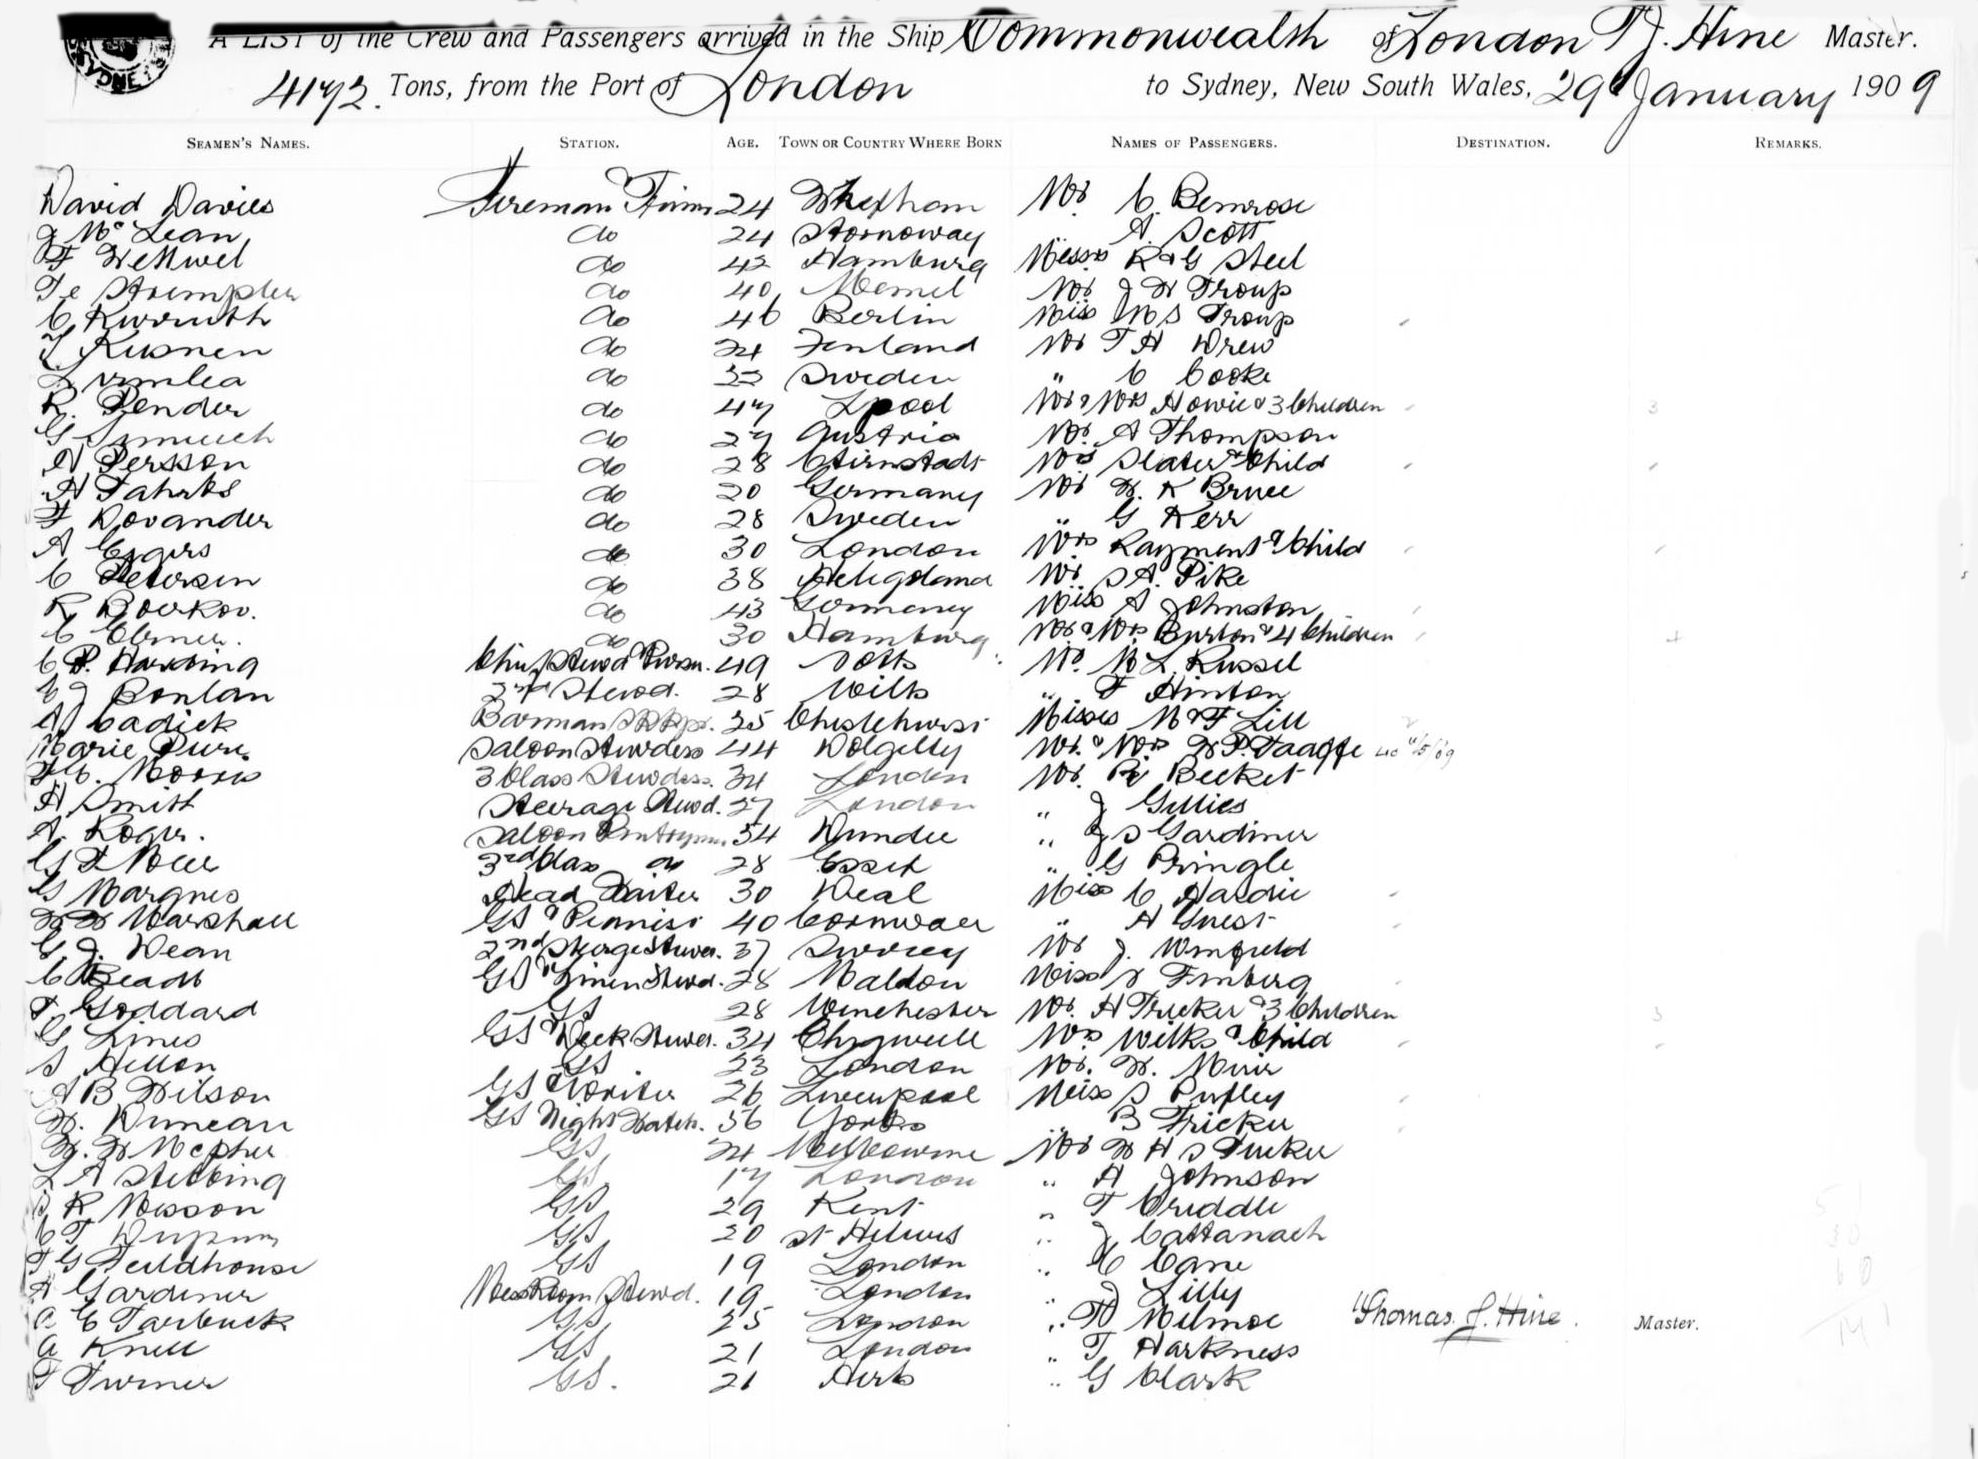 A LIST of the Crew and Passengers arrived in the Ship Commonwealth of London T J. Hine Master.
4172. Tons, from the Port of London to Sydney, New South Wales, 29th January 1909
SEAMEN'S NAMES. STATION. AGE. TOWN OR COUNTRY WHERE BORN NAMES OF PASSENGERS. DESTINATION. REMARKS.
David Davies Fireman Trimr 24 Wrexham Mr. C. Bemrose
J McLean do 24 Stornoway " A. Scott
F do 42 Hamburg Messrs R & G Steel
do 40 Memel Mr J W Troup
C do 46 Berlin Miss M S Troup
Kusnen do 24 Finland Mr T H Drew
do 33 Sweden " C Cooke
R. Pender do 47 Lpool Mr & Mrs Howie & 3 Children 3
G do 27 Austria Mr. A Thompson
N Persson do 28 Mrs Slater & Child
H Fahrks do 20 Germany Mr W. K Bruce
F Dovander do 28 Sweden " G Kerr
A Eggers do 30 London Mrs Rayment & Child
C Petersen do 38 Heligoland Mr S A. Pike
R do 43 Germany Miss A Johnston
C do 30 Hamburg Mr. & Mrs Burton & 4 Children 4
C P. Harding Chief Stewd Purser. 49 Notts Mr. M L. Russel
C J Conlan 2nd Stewd. 28 Wilts " F Hinton
A J Cadick Barman 25 Chislehurst Misses M & F Lill
Marie Saloon Stewdess 44 Dolgelly Mr. & Mrs W P.
Morris 3 Class Stewdess. 34 London Mr. Becket
H Smith Steerage Stewd. 27 London " J Gillies
A. Roger. Saloon Pantryman. 34 Dundee " J S Gardiner
G F 3rd Class do 28 Essex " G Pringle
G Margnes Head Waiter 30 Deal Miss C Hardie
W W Marshall GS & Pianist 40 Cornwall " A Guest
G J. Dean 2nd Sterge Stewd. 37 Surrey Mr J. Winfield
C Beadt GS & Linen Stewd. 28 Maldon Miss Finberg
F. Goddard GS 28 Winchester Mr. H Tricker & 3 Children 3
G Lines GS & Deck Stewd. 34 Chigwell Mrs Wilks & Child
S Hellon GS 23 London Mr. W. Muir
A B Wilson GS & Writer 26 Liverpool Miss S Pufley
W. Duncan GS Night Watch. 36 Yorks " B Tricker
W. W GS 24 Melbourne Mr W H S Tucker
L A Stebbing GS 17 London " A Johnson
S R Misson GS 29 Kent " T Criddle
C T GS 20 St Helens " J Cattanach
T G Fieldhouse GS 19 London " Cane
A Gardiner Mess Room Stewd. 19 London " J Lilly
A E Tarbuck GS 25 London " Milmoe Thomas J. Hine. Master.
A Knell GS 21 London " T Harkness
F Turner GS. 21 Herts " G Clark